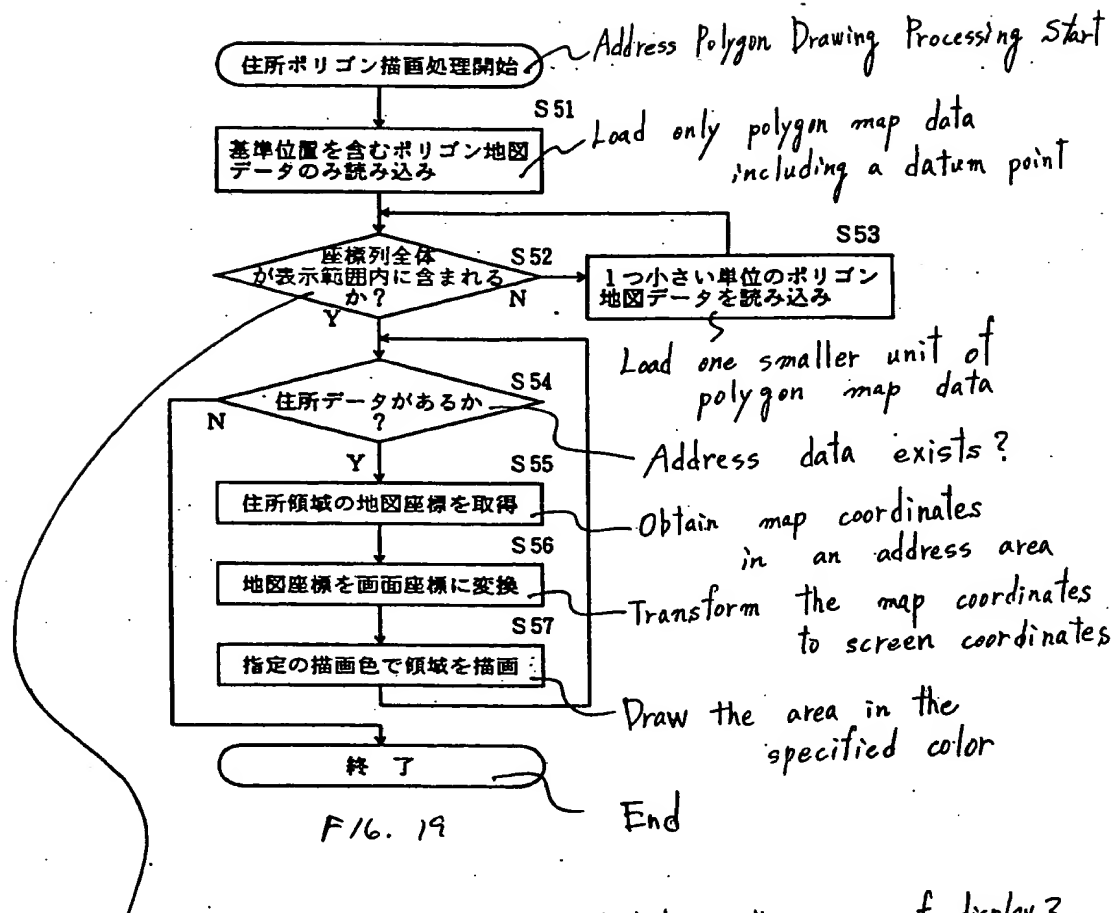 住所ポリゴン描画処理開始
Address Polygon Drawing Processing Start
S51
基準位置を含むポリゴン地図
データのみ読み込み
Load only polygon map data
including a datum point
S52
座標列全体
が表示範囲内に含まれる
か?
N
Y
S53
1つ小さい単位のポリゴン
地図データを読み込み
Load one smaller unit of
polygon map data
S54
住所データがあるか
?
N
Y
Address data exists?
S55
住所領域の地図座標を取得
Obtain map coordinates
in an address area
S56
地図座標を画面座標に変換
Transform the map coordinates
to screen coordinates
S57
指定の描画色で領域を描画
Draw the area in the
specified color
終了
End
FIG. 19
of display?